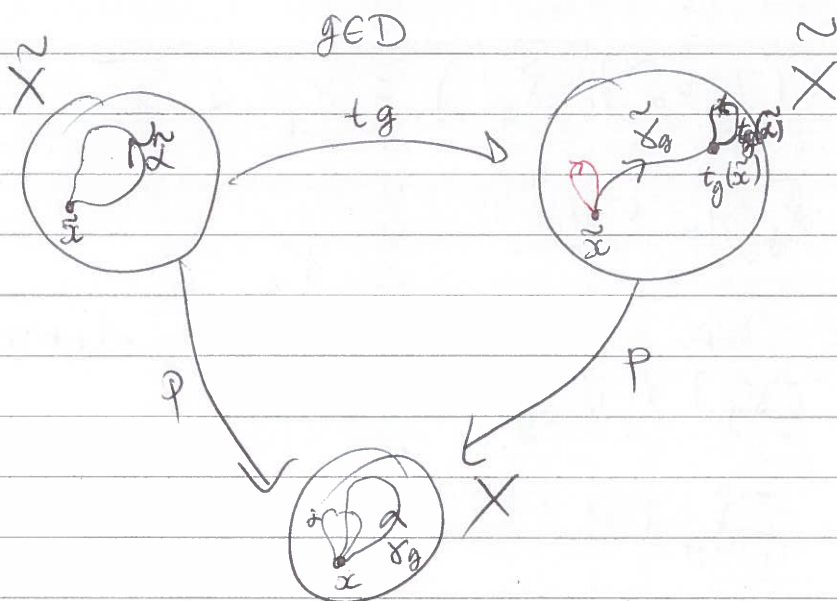 g∈D
X̃ X̃
t_g
α̃ γ̃_g t_g(α̃)
x̃ t_g(x̃)
x̃
P P
X
α
γ_g
x